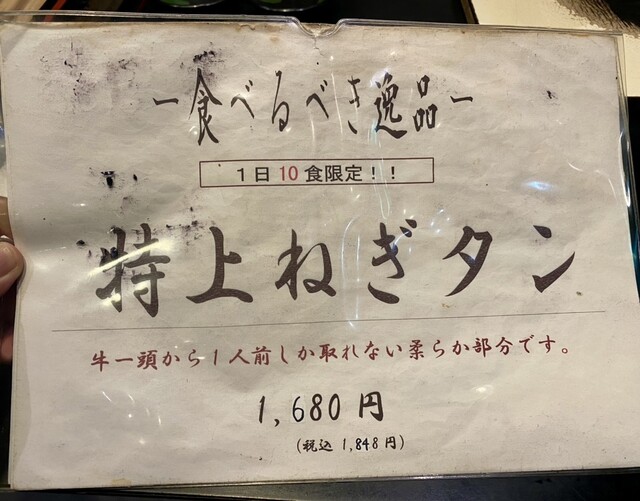 ー食べるべき逸品ー
１日10食限定！！
特上ねぎタン
牛一頭から１人前しか取れない柔らか部分です。
1,680円
(税込 1,848円)